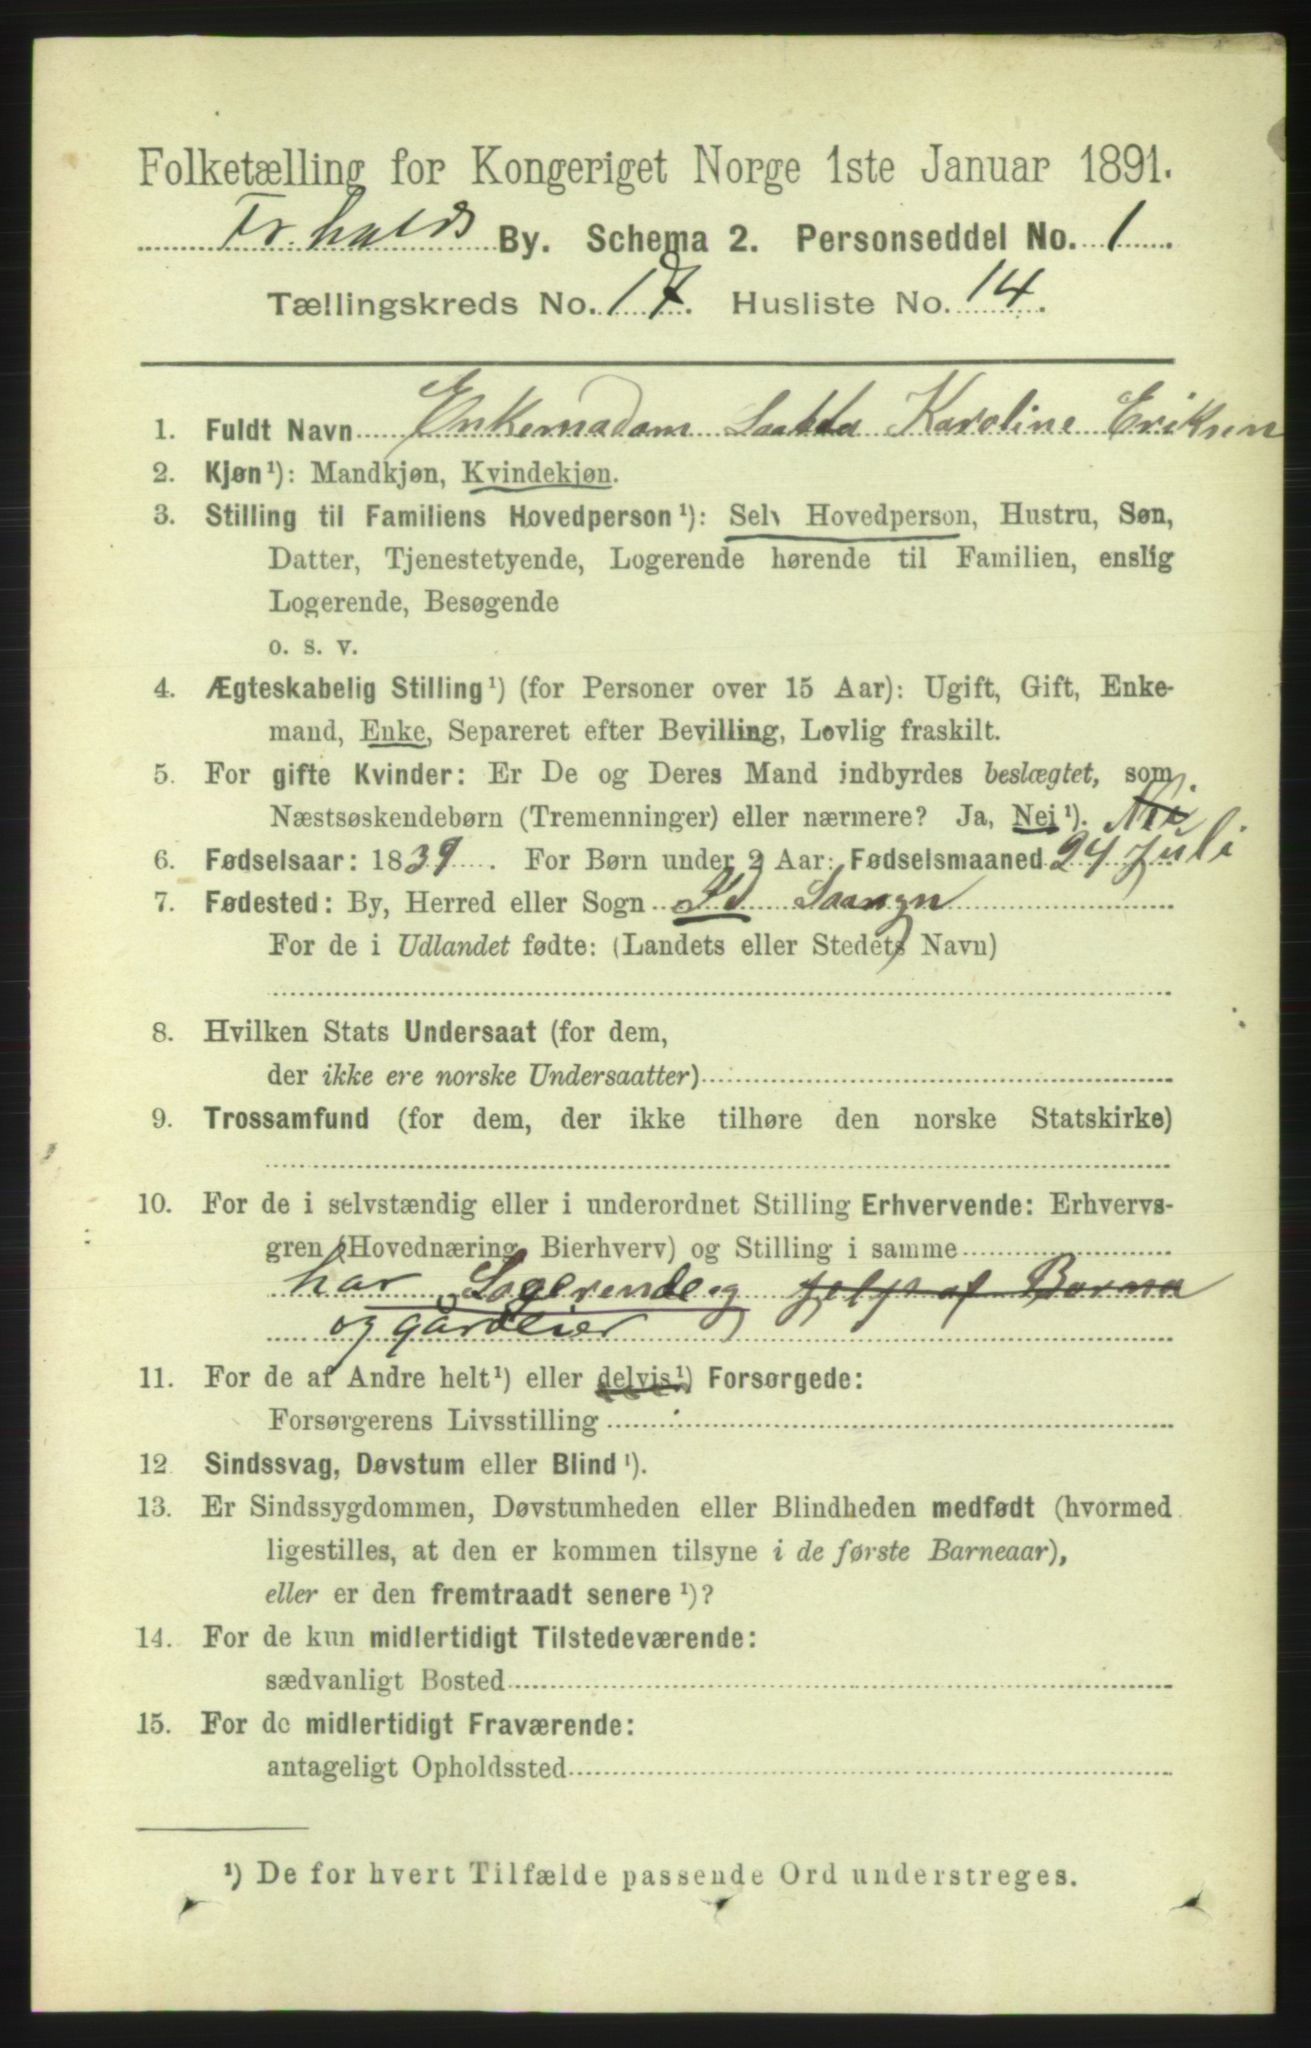 Folketælling for Kongeriget Norge 1ste Januar 1891.
Fr.halds By. Schema 2. Personseddel No. 1
Tællingskreds No. 17. Husliste No. 14.
1. Fuldt Navn Enkemadam Karoline Eriksen
2. Kjøn¹): Mandkjøn, Kvindekjøn.
3. Stilling til Familiens Hovedperson¹): Selv Hovedperson, Hustru, Søn,
Datter, Tjenestetyende, Logerende hørende til Familien, enslig
Logerende, Besøgende
o. s. v.
4. Ægteskabelig Stilling¹) (for Personer over 15 Aar): Ugift, Gift, Enke-
mand, Enke, Separeret efter Bevilling, Lovlig fraskilt.
5. For gifte Kvinder: Er De og Deres Mand indbyrdes beslægtet, som
Næstsøskendebørn (Tremenninger) eller nærmere? Ja, Nei¹). Nei
6. Fødselsaar: 1839. For Børn under 2 Aar: Fødselsmaaned 24 Juli
7. Fødested: By, Herred eller Sogn Id
For de i Udlandet fødte: (Landets eller Stedets Navn)
8. Hvilken Stats Undersaat (for dem,
der ikke ere norske Undersaatter)
9. Trossamfund (for dem, der ikke tilhøre den norske Statskirke)
10. For de i selvstændig eller i underordnet Stilling Erhvervende: Erhvervs-
gren (Hovednæring, Bierhverv) og Stilling i samme
har Logerende og jelp af Børna
og gårdeier
11. For de af Andre helt¹) eller delvis¹) Forsørgede:
Forsørgerens Livsstilling
12 Sindssvag, Døvstum eller Blind¹).
13. Er Sindssygdommen, Døvstumheden eller Blindheden medfødt (hvormed
ligestilles, at den er kommen tilsyne i de første Barneaar),
eller er den fremtraadt senere¹)?
14. For de kun midlertidigt Tilstedeværende:
sædvanligt Bosted
15. For de midlertidigt Fraværende:
antageligt Opholdssted
¹) De for hvert Tilfælde passende Ord understreges.